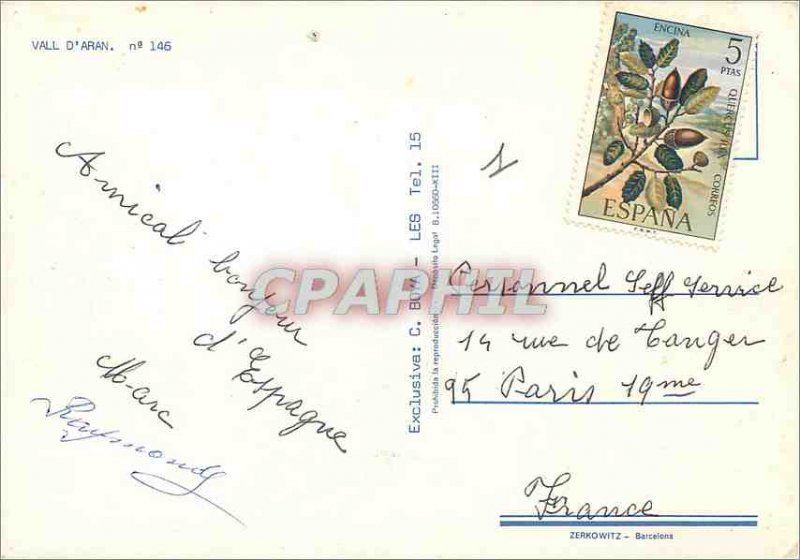 VALL D'ARAN. nº 146
Amical bonjour
d'Espagne
Marc
Raymond
Exclusiva: C. BOYA - LES Tel. 15
Prohibida la reproducción Depósito Legal B.10560-XIII
CPARPHIL
ENCINA
5
PTAS
QUERCUS ILEX
CORREOS
ESPAÑA
F.N.M.T.
Personnel Self Service
14 rue de Tanger
95 Paris 19me
France
ZERKOWITZ - Barcelona